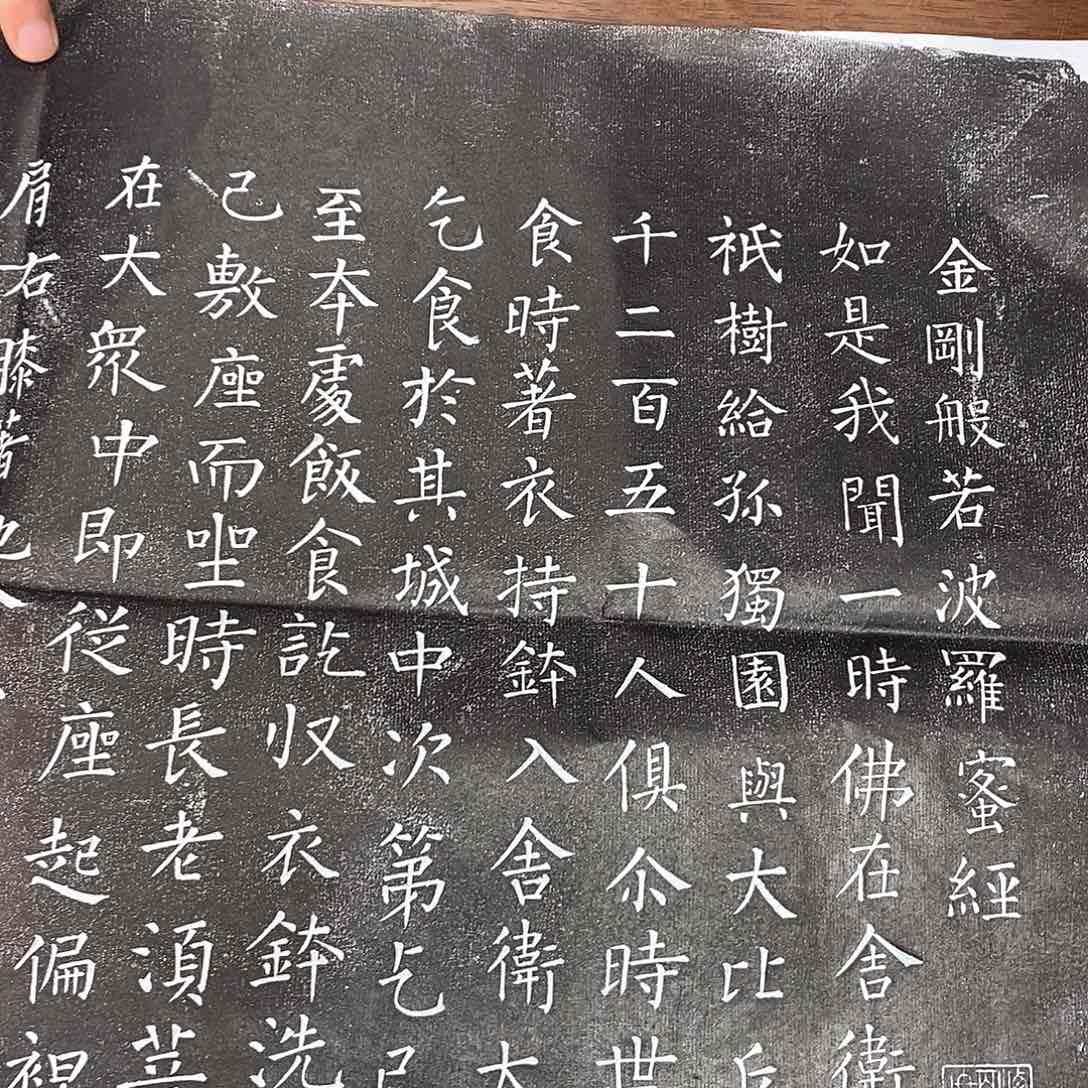 金剛般若波羅蜜經
如是我聞一時佛在舍衛
祇樹給孤獨園與大比丘
千二百五十人俱尒時世
食時著衣持鉢入舍衛大
乞食於其城中次第乞已
至夲處飯食訖収衣鉢洗
已敷座而坐時長老湏菩
在大衆中即從座起偏袒
肩右膝著